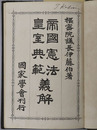 樞密院議長伯爵伊藤博文著
帝國憲法
皇室典範
義解
國家學會刊行